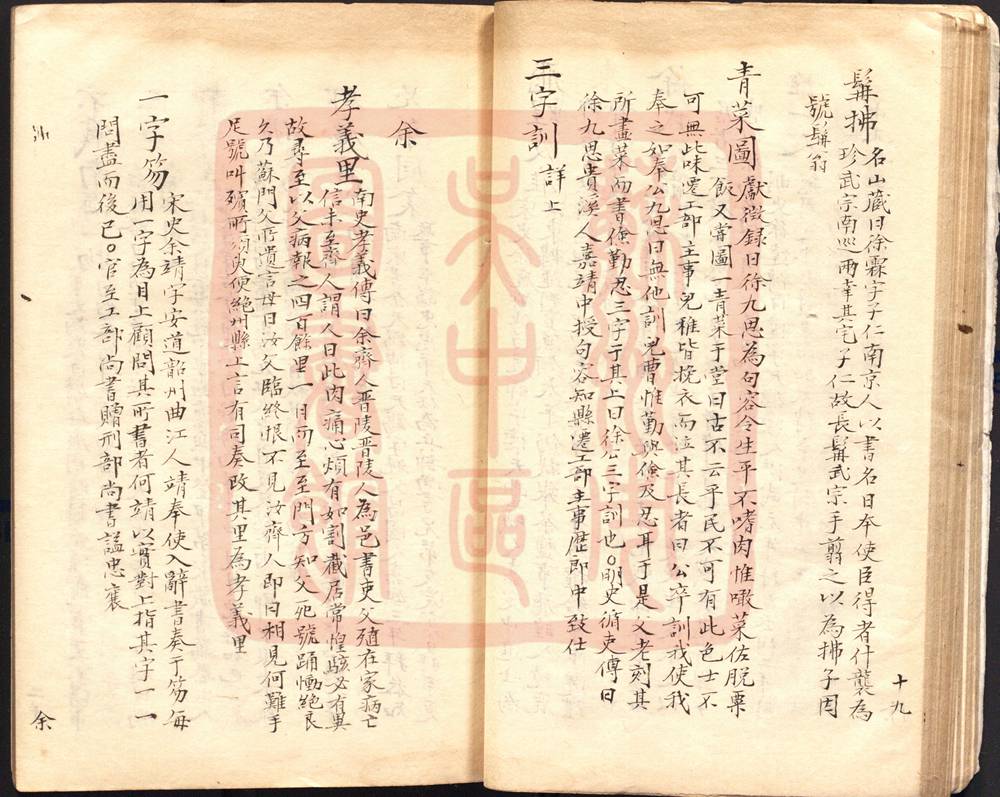 髯拂 名山藏曰徐霖字子仁南京人以書名日本使臣得者什襲為
珍武宗南巡兩幸其宅子仁故長髯武宗手剪之以為拂子因
號髯翁
青菜圖 獻徵錄曰徐九思為句容令生平不嗜肉惟噉菜佐脫粟
飯又嘗圖一青菜于堂曰古不云乎民不可有此色士不
可無此味遷工部主事兒稚皆挽衣而泣其長者曰公卒訓我使我
奉之如奉公九思曰無他訓兒曹惟勤與儉及忍耳于是父老刻其
所畫菜而書儉勤忍三字于其上曰徐公三字訓也○明史循吏傳曰
徐九思貴溪人嘉靖中授句容知縣遷工部主事歷郎中致仕
三字訓 詳上
十九
余
孝義里 南史孝義傳曰余齊人晉陵晉陵人為邑書吏父殖在家病亡
信未至齊人謂人曰此肉痛心煩有如割截居常惶駭必有異
故尋至以父病報之四百餘里一日而至至門方知父死號踊慟絕良
久乃蘇問父所遺言母曰汝父臨終恨不見汝齊人即曰相見何難手
足號叫殯所須臾便絕州縣上言有司奏改其里為孝義里
一字笏 宋史余靖字安道韶州曲江人靖奉使入辭書奏于笏每
用一字為目上顧問其所書者何靖以實對上指其字一一
問盡而後已○官至工部尚書贈刑部尚書謚忠襄
余